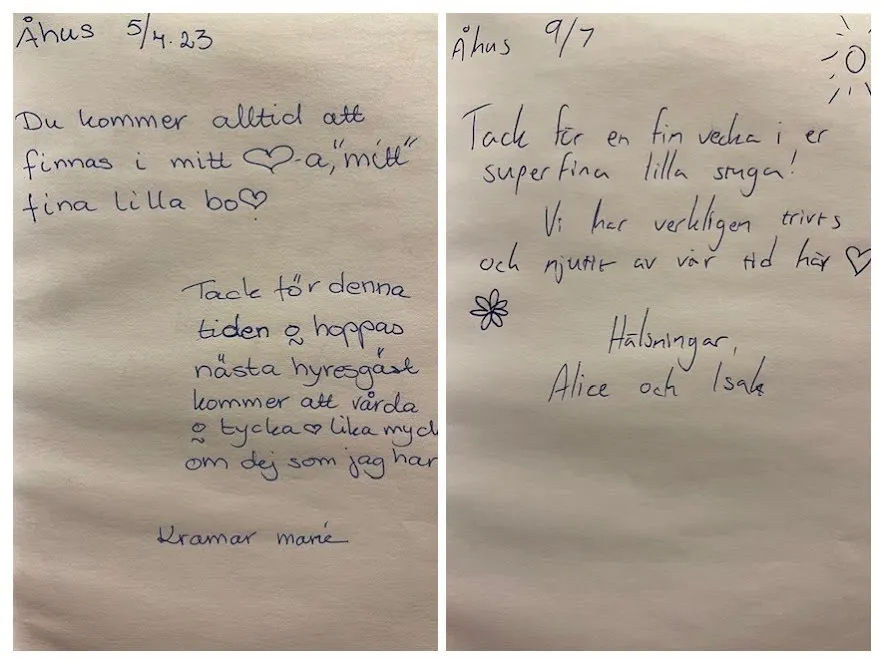 Åhus 5/4.23
Du kommer alltid att
finnas i mitt ♡-a, "mitt"
fina lilla bo♡
Tack för denna
tiden & hoppas
nästa hyresgäst
kommer att vårda
& tycka ♡ lika myck
om dej som jag har
Kramar marie
Åhus 9/7
Tack för en fin vecka i er
superfina lilla stuga!
Vi har verkligen trivts
och njutit av vår tid här ♡
Hälsningar,
Alice och Isak